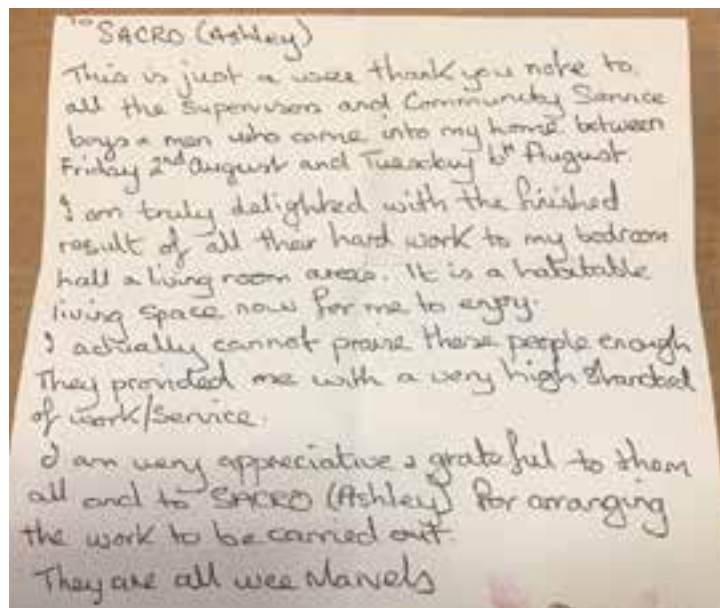 To
SACRO (Ashley)
This is just a wee thank you note to
all the Supervisors and Community Service
boys & men who came into my home between
Friday 2nd August and Tuesday 6th August.
I am truly delighted with the finished
result of all their hard work to my bedroom
hall & living room areas. It is a habitable
living space now for me to enjoy.
I actually cannot praise these people enough
They provided me with a very high standard
of work/service.
I am very appreciative & grateful to them
all and to SACRO (Ashley) for arranging
the work to be carried out.
They are all wee Marvels